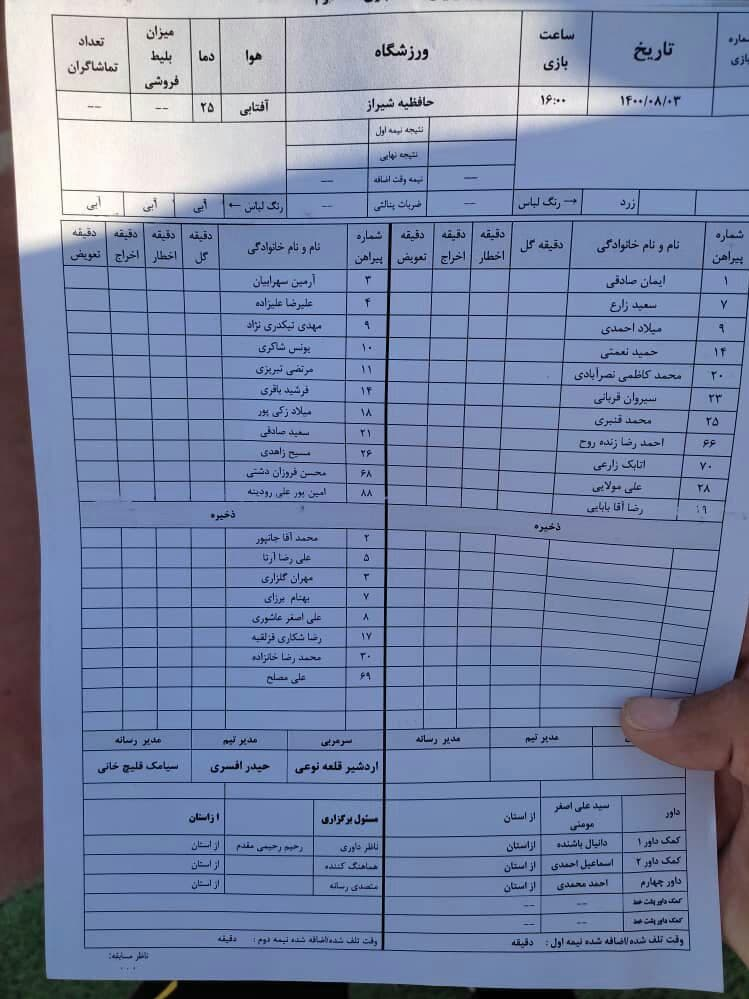 شماره بازی	تاریخ	ساعت بازی	ورزشگاه	هوا	دما	میزان بلیط فروشی	تعداد تماشاگران
۱۴۰۰/۰۸/۰۳	۱۶:۰۰	حافظیه شیراز	آفتابی	۲۵	--	--
نتیجه نیمه اول
نتیجه نهایی
--	نیمه وقت اضافه	--
زرد	→ رنگ لباس	--	ضربات پنالتی	--	رنگ لباس ←	آبی	آبی	آبی
شماره پیراهن	نام و نام خانوادگی	دقیقه گل	دقیقه اخطار	دقیقه اخراج	دقیقه تعویض	شماره پیراهن	نام و نام خانوادگی	دقیقه گل	دقیقه اخطار	دقیقه اخراج	دقیقه تعویض
۱	ایمان صادقی	۳	آرمین سهرابیان
۷	سعید زارع	۴	علیرضا علیزاده
۹	میلاد احمدی	۹	مهدی نیکدری نژاد
۱۴	حمید نعمتی	۱۰	یونس شاکری
۲۰	محمد کاظمی نصرآبادی	۱۱	مرتضی تبریزی
۲۳	سیروان قربانی	۱۴	فرشید باقری
۲۵	محمد قنبری	۱۸	میلاد زکی پور
۶۶	احمد رضا زنده روح	۲۱	سعید صادقی
۷۰	اتابک زارعی	۲۶	مسیح زاهدی
۲۸	علی مولایی	۶۸	محسن فروزان دشتی
۱۹	رضا آقا بابایی	۸۸	امین پور علی رودینه
ذخیره	ذخیره
۲	محمد آقا جانپور
۵	علی رضا آرتا
۳	مهران گلزاری
۷	بهنام برزای
۸	علی اصغر عاشوری
۱۷	رضا شکاری قزلقیه
۳۰	محمد رضا خانزاده
۶۹	علی مصلح
مدیر تیم	مدیر رسانه	سرمربی	مدیر تیم	مدیر رسانه
اردشیر قلعه نوعی	حیدر افسری	سیامک قلیچ خانی
داور	سید علی اصغر مومنی	از استان	مسئول برگزاری	ا زاستان
کمک داور ۱	دانیال باشنده	ازاستان	ناظر داوری	رحیم رحیمی مقدم	از استان
کمک داور ۲	اسماعیل احمدی	از استان	هماهنگ کننده	از استان
داور چهارم	احمد محمدی	از استان	متصدی رسانه	از استان
کمک داور پشت خط	--	--
کمک داور پشت خط	--	--
وقت تلف شده/اضافه شده نیمه اول :	دقیقه	وقت تلف شده/اضافه شده نیمه دوم :	دقیقه
ناظر مسابقه: